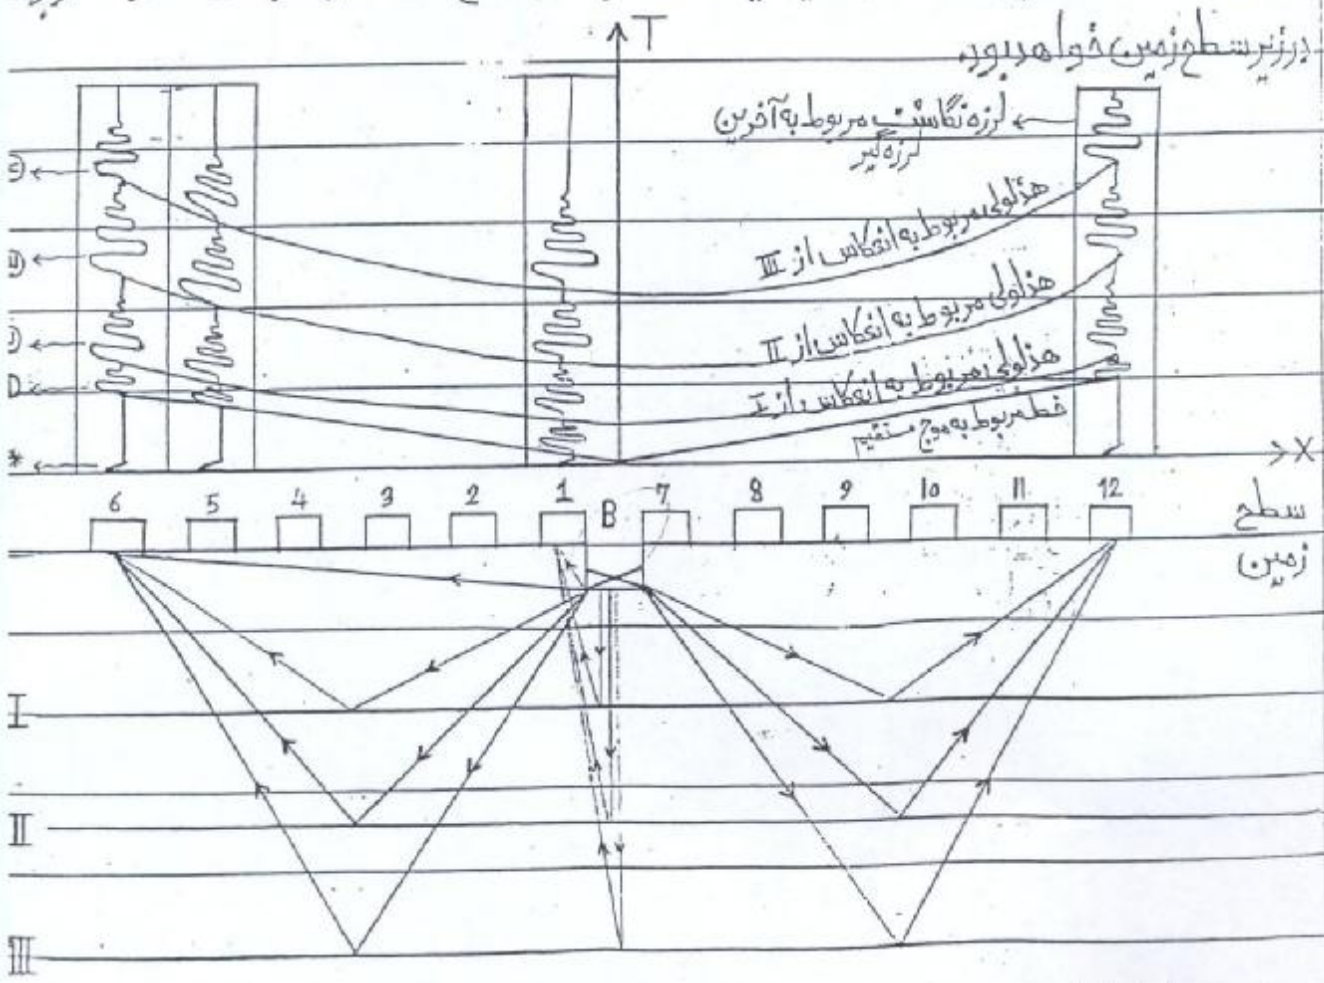 T
در زیر سطح زمین خواهد بود.
لرزه نگاشت مربوط به آخرین
لرزه گیر
هذلولی مربوط به انعکاس از III
هذلولی مربوط به انعکاس از II
هذلولی مربوط به انعکاس از I
خط مربوط به موج مستقیم
D
*
X
6 5 4 3 2 1 B 7 8 9 10 11 12
سطح
زمین
I
II
III